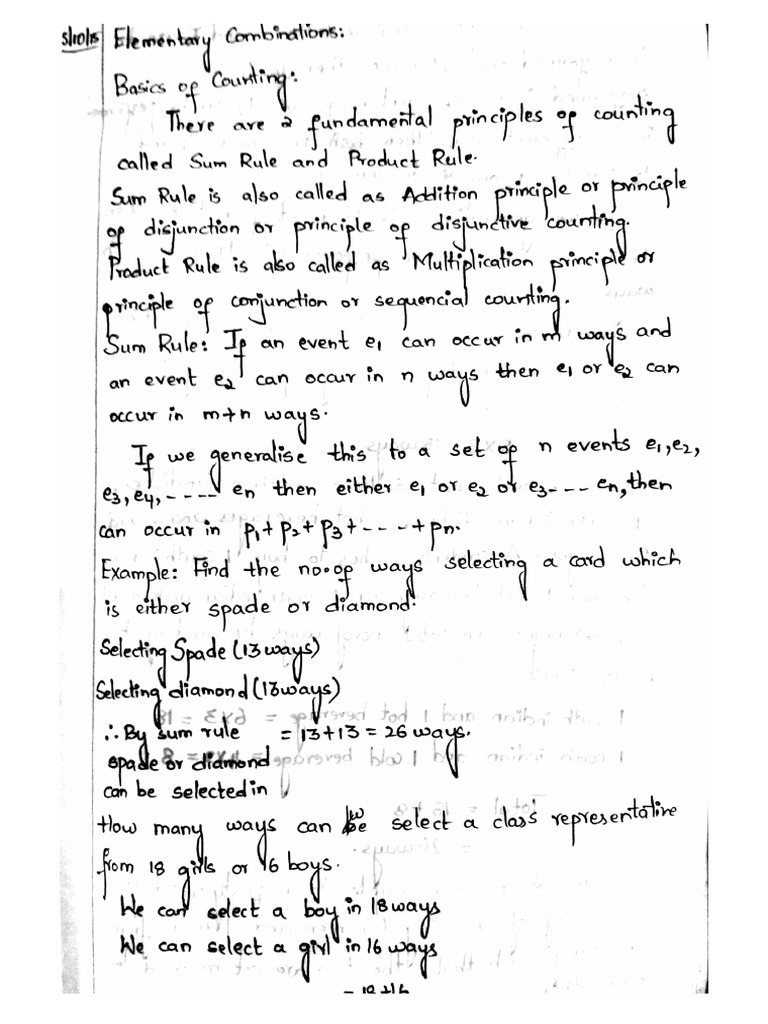 5/10/15 Elementary Combinations:
Basics of Counting:
There are 2 fundamental principles of counting
called Sum Rule and Product Rule.
Sum Rule is also called as Addition principle or principle
of disjunction or principle of disjunctive counting.
Product Rule is also called as Multiplication principle or
principle of conjunction or sequencial counting.
Sum Rule: If an event e₁ can occur in m ways and
an event e₂ can occur in n ways then e₁ or e₂ can
occur in m+n ways.
If we generalise this to a set of n events e₁,e₂,
e₃,e₄,----- en then either e₁ or e₂ or e₃---- en,then
can occur in p₁+p₂+p₃+----+pn.
Example: Find the no.of ways selecting a card which
is either spade or diamond.
Selecting Spade (13 ways)
Selecting diamond (13ways)
∴ By sum rule = 13+13 = 26 ways.
spade or diamond
can be selected in
How many ways can we select a class representative
from 18 girls or 16 boys.
We can select a boy in 18 ways
We can select a girl in 16 ways
= 18+16